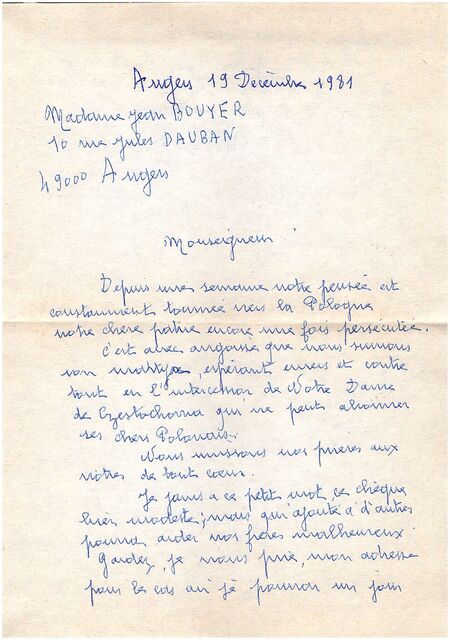 Angers 19 Décembre 1981
Madame Jean BOUYER
10 rue Jules DAUBAN
49000 Angers
Monseigneur
Depuis une semaine notre pensée est
constamment tournée vers la Pologne
notre chère patrie encore une fois persécutée.
C'est avec angoisse que nous suivons
son martyre, espérant envers et contre
tout en l'intercession de Notre Dame
de Czestochowa qui ne peut abandonner
ses chers Polonais.
Nous unissons nos prières aux
vôtres de tout coeur.
Je joins a ce petit mot, ce chèque
bien modeste; mais qui ajouté à d'autres
pourra aider nos frères malheureux.
Gardez, je vous prie, mon adresse
pour le cas où je pourrai un jour